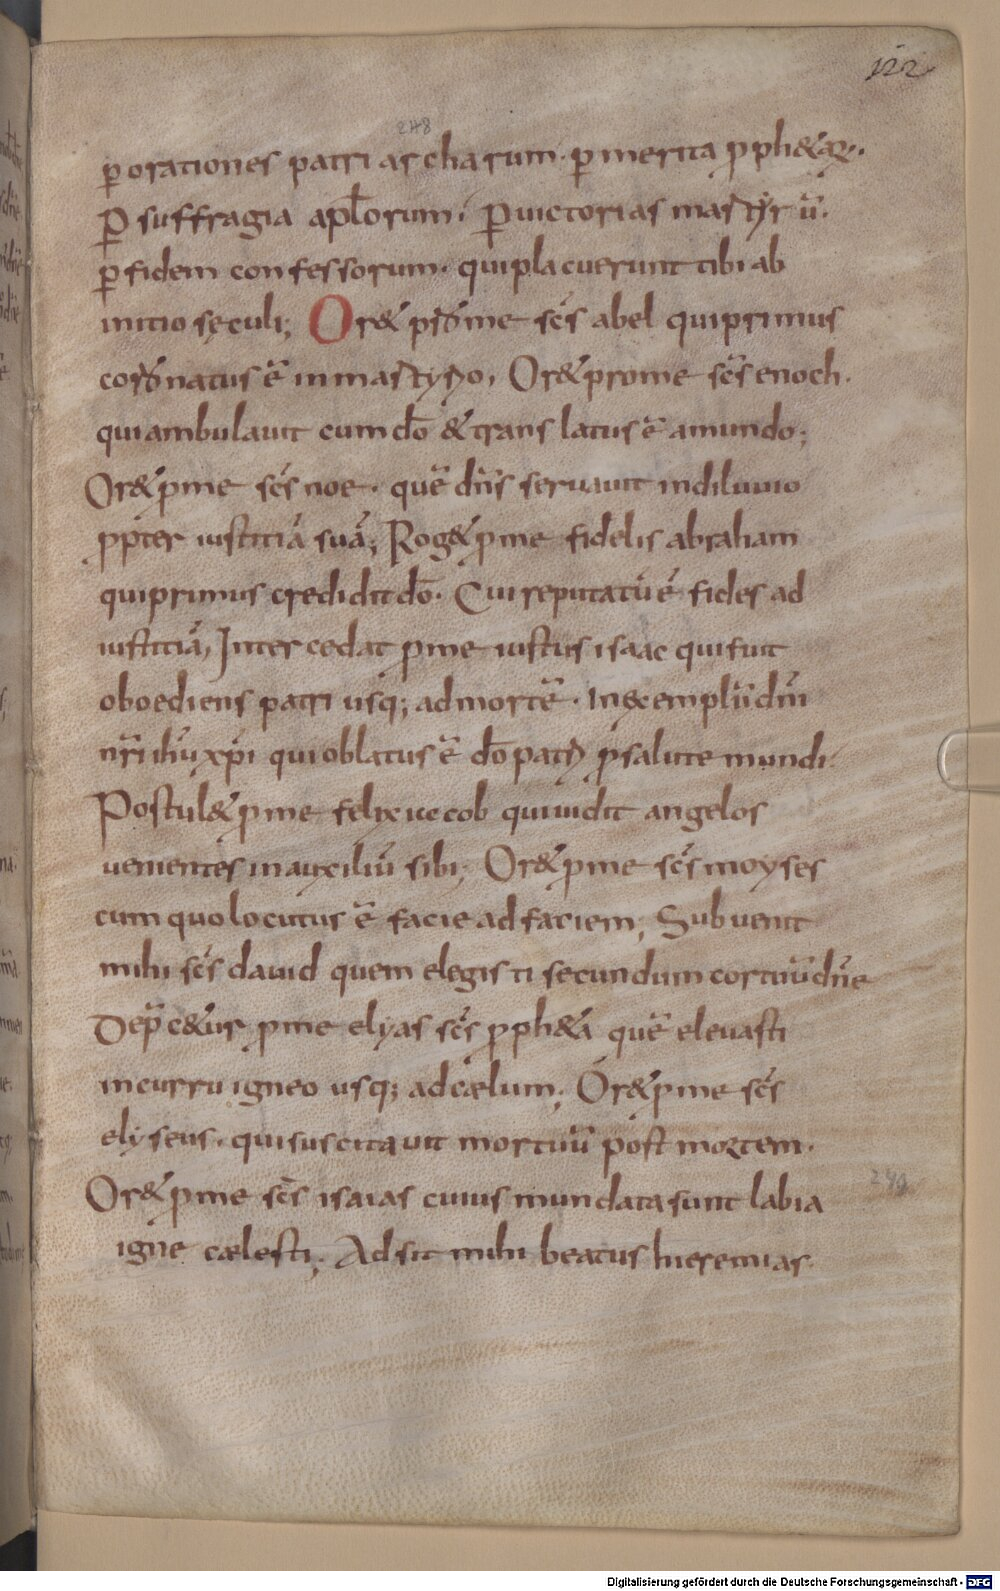 122
248
p̲ orationes patriarcharum · p̲ merita ꝓph&aꝝ ·
P̲ suffragia apl̄orum · P̲ uictorias martyrū ·
p̲ fidem confessorum · qui placuerunt tibi ab
initio sęculi; Or& ꝓ me sc̄s abel qui primus
coronatus ē in martyrio, Or& ꝓ me sc̄s enoch ·
qui ambulauit cum dō & translatus ē a mundo;
Or& ꝓ me sc̄s noe · quē dn̄s seruauit in diluuio
ꝓpter iustitiā suā; Rog& ꝓ me fidelis abraham
qui primus credidit dō · Cui reputatū ē fides ad
iustitiā, Intercedat ꝓ me iustus isaac qui fuit
oboediens patri usq; ad mortē · In exemplū dn̄i
nr̄i ihū xp̄i qui oblatus ē dō patri ꝓ salute mundi ·
Postul& ꝓ me felix iacob qui uidit angelos
uenientes in auxiliū sibi; Or& ꝓ me sc̄s moyses
cum quo locutus ē facie ad faciem; Subuenit
mihi sc̄s dauid quem elegisti secundum cor tuū dn̄e
Dep̄c&ur ꝓ me elyas sc̄s ꝓph&a quē eleuasti
in curru igneo usq; ad cælum; Or& ꝓ me sc̄s
elyseus · qui suscitauit mortuū post mortem ·
Or& ꝓ me sc̄s isaias cuius mundata sunt labia
249
igne cælesti; Adsit mihi beatus hieremias
Digitalisierung gefördert durch die Deutsche Forschungsgemeinschaft - DFG